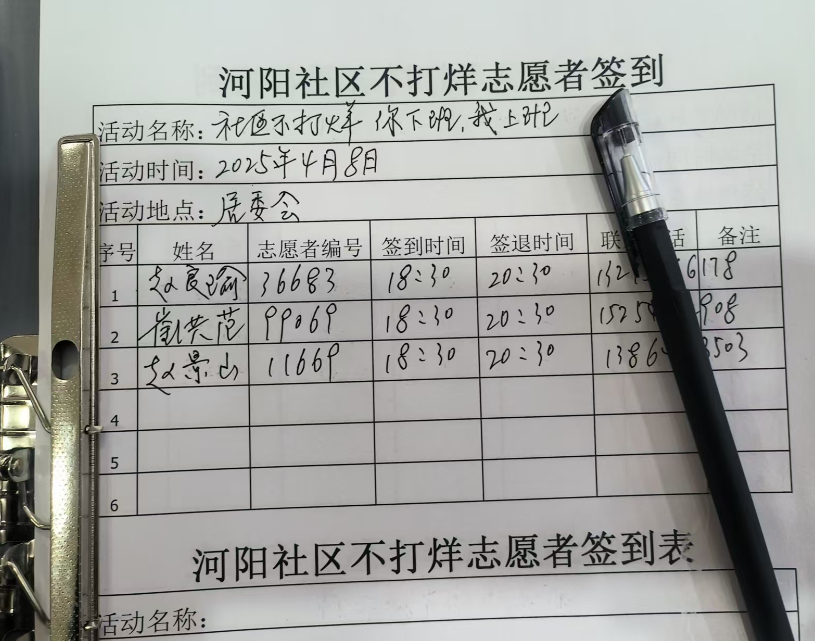 河阳社区不打烊志愿者签到
活动名称：社区不打烊 你下班，我上班
活动时间：2025年4月8日
活动地点：居委会
序号 姓名 志愿者编号 签到时间 签退时间 联 话 备注
1 赵良瑜 36683 18:30 20:30 132 6178
2 崔洪范 99069 18:30 20:30 1525 908
3 赵景山 11669 18:30 20:30 1386 3503
4
5
6
河阳社区不打烊志愿者签到表
活动名称：